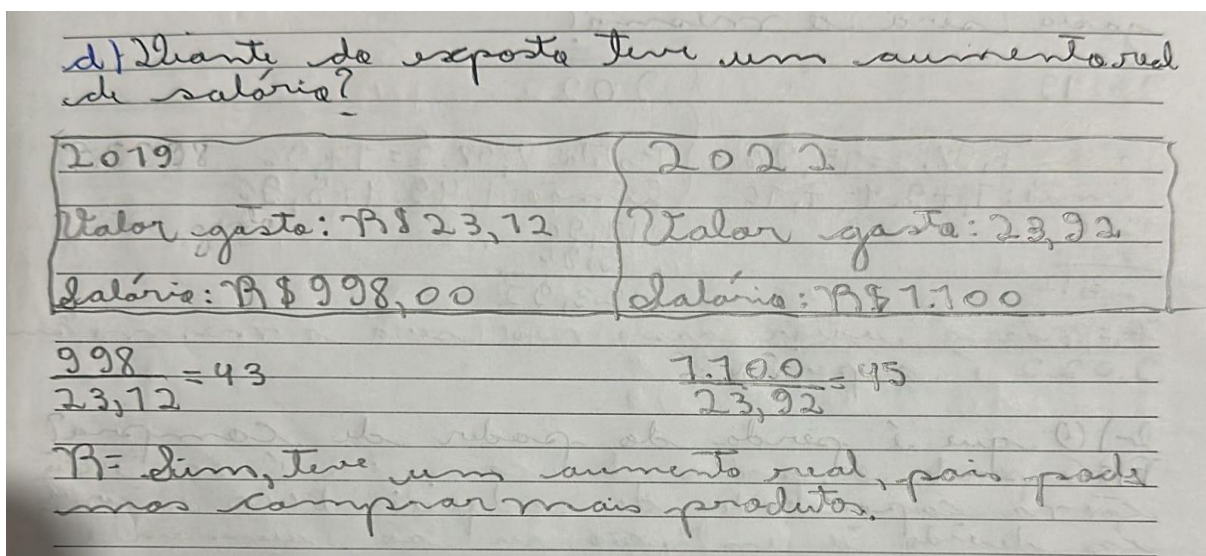 d) Diante do exposto teve um aumento real
de salário?
2019
2022
Valor gasto: R$ 23,12
Valor gasto: 23,92
Salário: R$ 998,00
Salário: R$ 1.100
998/23,12 = 43
1.100/23,92 = 45
R= Sim, teve um aumento real, pois pode
mos comprar mais produtos.